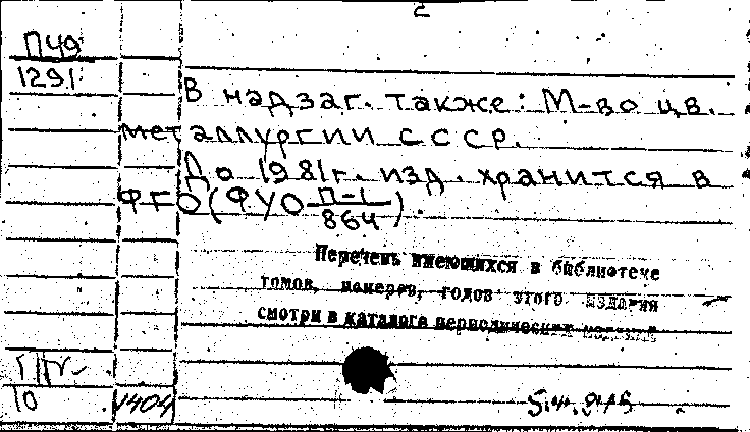 П49
1291
В надзаг. также: М-во цв.
металлургии СССР.
До 1981г. изд. хранится в
ФГО (ФУО П-1/864).
Перечень имеющихся в библиотеке
томов, номеров, годов этого издания
смотри в каталоге периодических изданий
10
1404